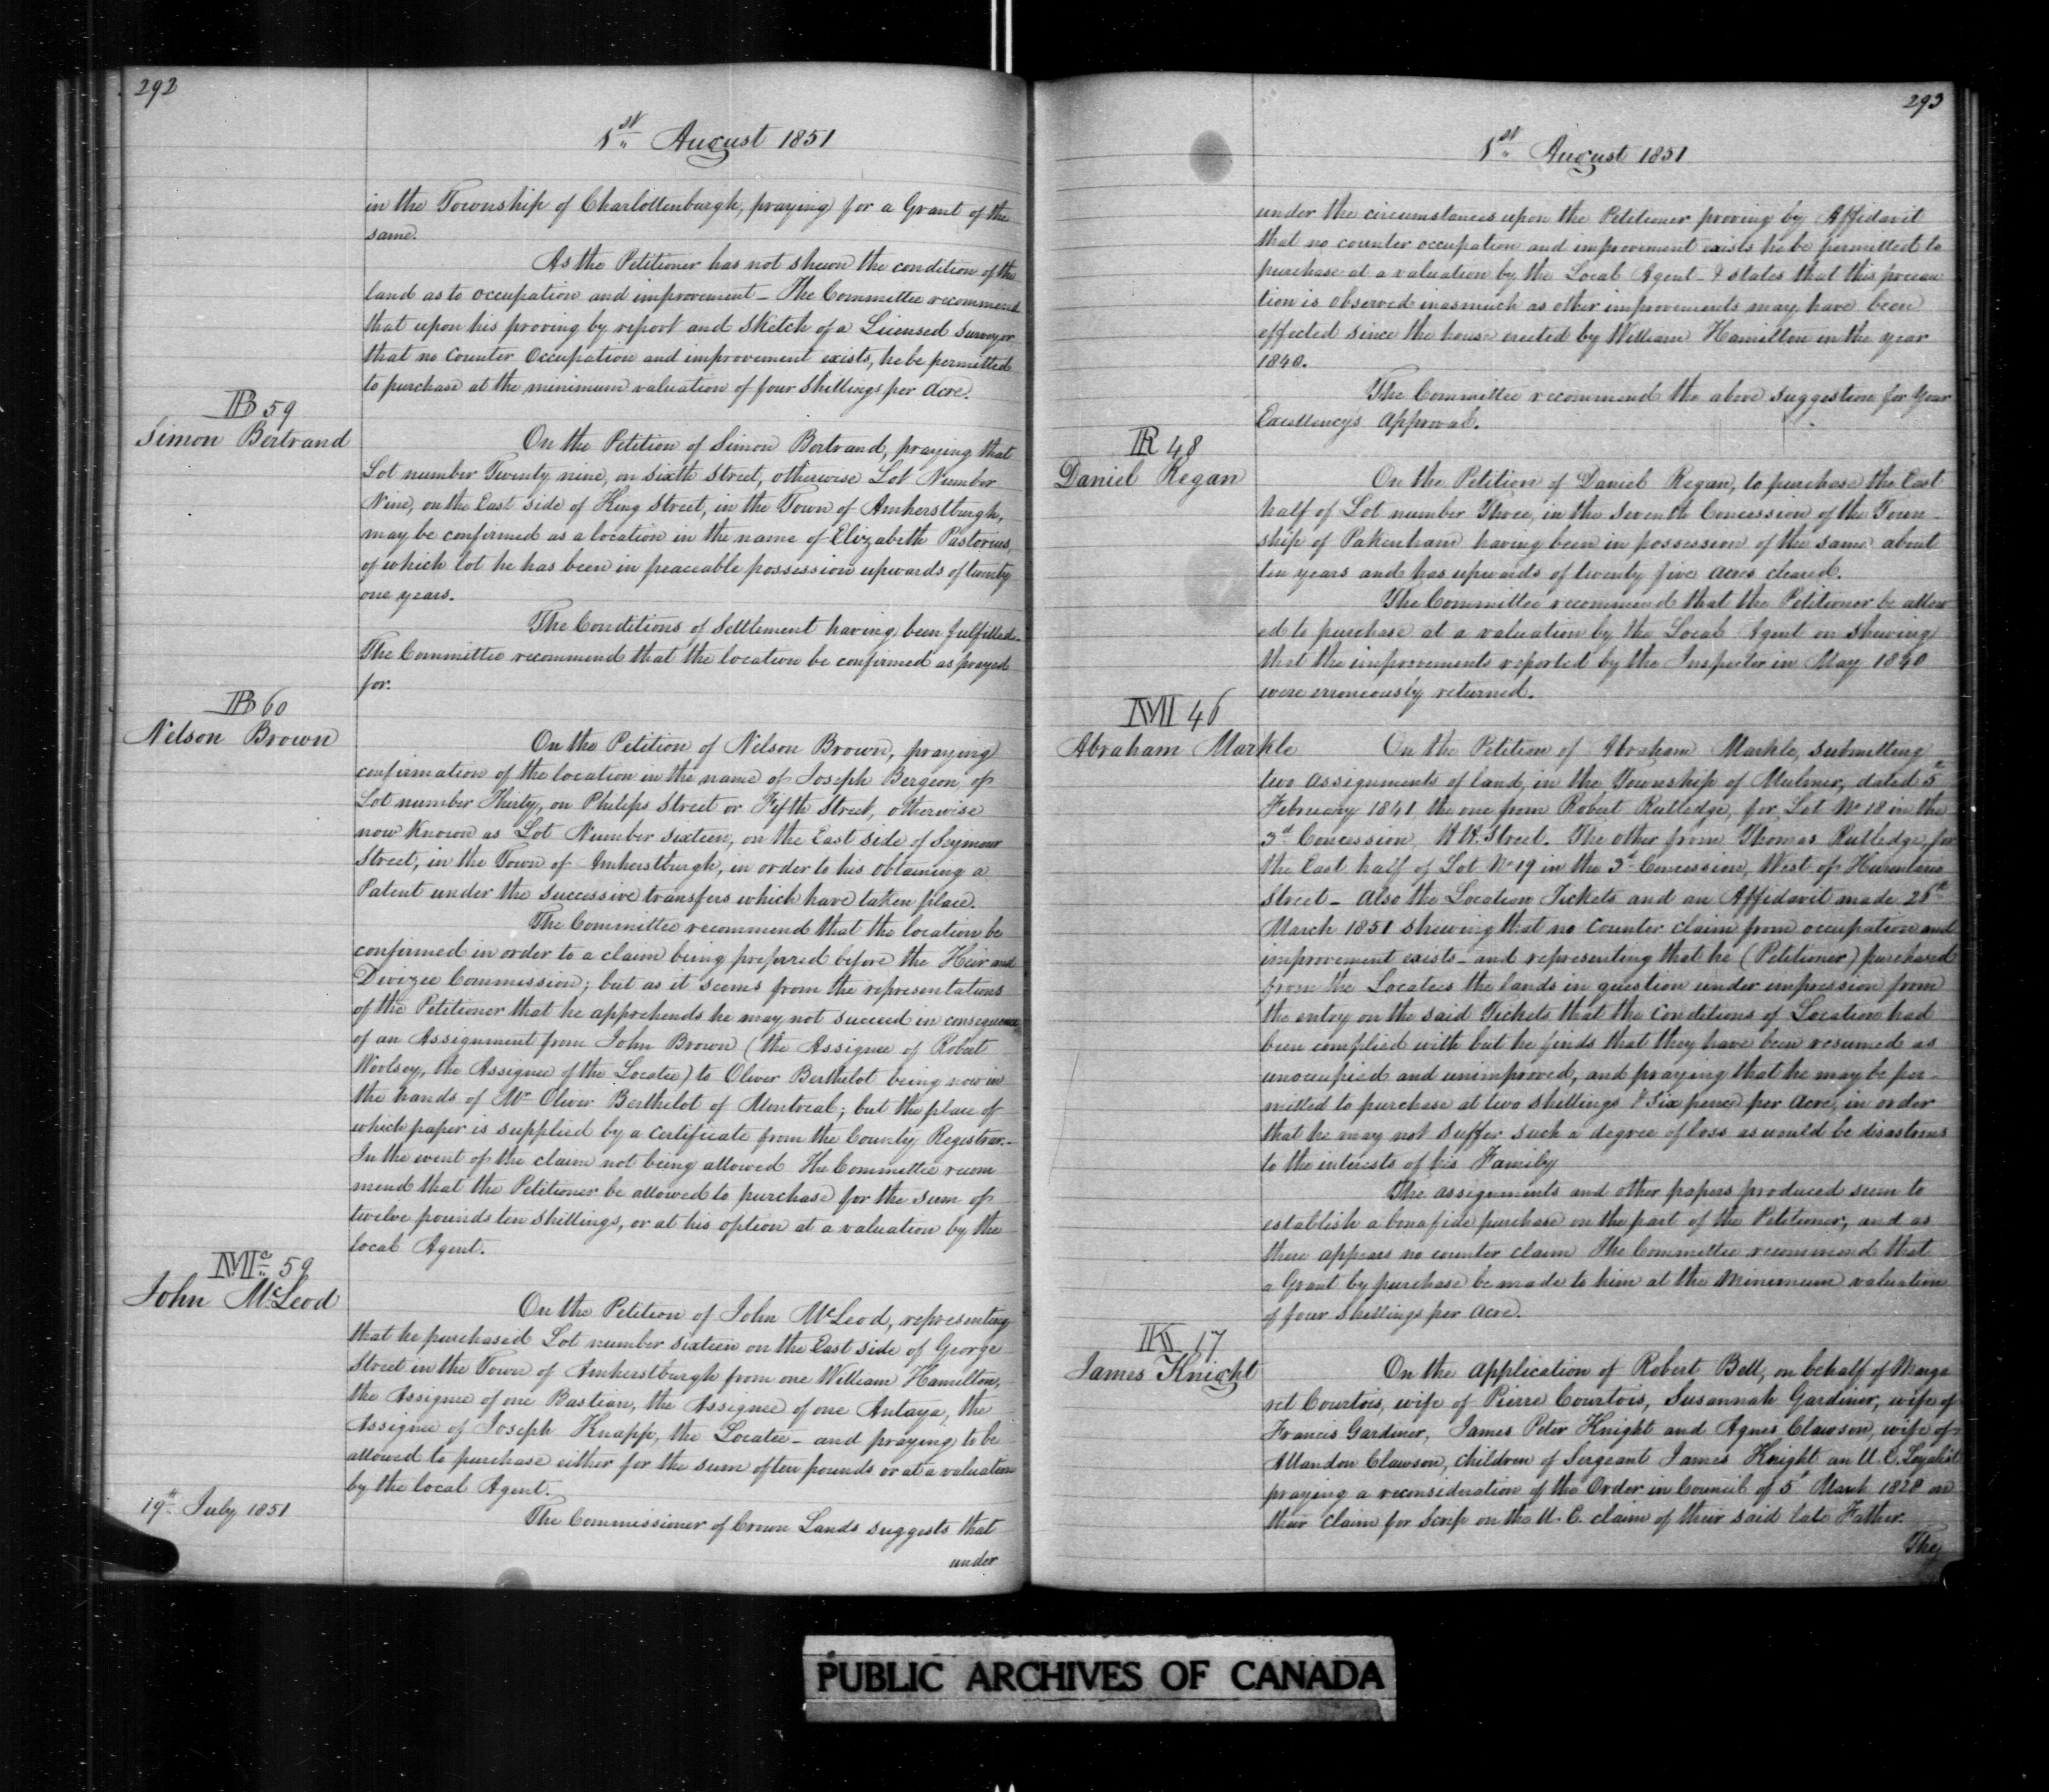 292
1st August 1851
in the Township of Charlottenburgh, praying for a Grant of the
same.
As the Petitioner has not shewn the condition of the
land as to occupation and improvement_ The Committee recommend
that upon his proving by report and sketch of a Licensed Surveyor
that no counter Occupation and improvement exists, he be permitted
to purchase at the minimum valuation of four Shillings per Acre.
B 59
Simon Bertrand
On the Petition of Simon Bertrand, praying that
Lot number Twenty nine, on sixth street, otherwise Lot Number
Nine, on the East side of King Street, in the Town of Amherstburgh,
may be confirmed as a location in the name of Elizabeth Pastorius,
of which lot he has been in peaceable possession upwards of twenty
one years.
The Conditions of settlement having been fulfilled_
The Committee recommend that the location be confirmed as prayed
for.
B 60
Nelson Brown
On the Petition of Nelson Brown, praying
confirmation of the location in the name of Joseph Bergeon, of
Lot number Thirty, on Philips Street or Fifth Street, otherwise
now known as Lot Number sixteen, on the East side of Seymour
Street, in the Town of Amherstburgh, in order to his obtaining a
Patent under the successive transfers which have taken place.
The Committee recommend that the location be
confirmed in order to a claim being preferred before the Heir and
Divizee Commission; but as it seems from the representations
of the Petitioner that he apprehends he may not succeed in consequence
of an Assignment from John Brown (the Assignee of Robert
Woolsey, the Assignee of the Locatee) to Oliver Berthelot being now in
the hands of Mr Oliver Berthelot of Montreal; but the place of
which paper is supplied by a certificate from the County Registrar._
In the event of the claim not being allowed The Committee recom
mend that the Petitioner be allowed to purchase for the sum of
twelve pounds ten shillings, or at his option at a valuation by the
local Agent.
Mc 59
John McLeod
On the Petition of John McLeod, representing
that he purchased Lot number sixteen on the East side of George
Street in the Town of Amherstburgh from one William Hamilton,
the Assignee of one Bastian, the Assignee of one Antaya, the
Assignee of Joseph Knapp, the Locatee_ and praying to be
allowed to purchase either for the sum of ten pounds or at a valuation
by the local Agent.
19th July 1851
The Commissioner of Crown Lands suggests that
under
293
1st August 1851
under the circumstances upon the Petitioner proving by Affidavit
that no counter occupation and improvement exists he be permitted to
purchase at a valuation by the Local Agent_ & states that this precau
tion is observed inasmuch as other improvements may have been
effected since the house erected by William Hamilton in the year
1840.
The Committee recommend the above suggestion for Your
Excellency's Approval.
R 48
Daniel Regan
On the Petition of Daniel Regan, to purchase the East
half of Lot number Three, in the Seventh Concession of the Town_
ship of Pakenham having been in possession of the same about
ten years and has upwards of twenty five acres cleared.
The Committee recommend that the Petitioner be allow
ed to purchase at a valuation by the Local Agent on shewing
that the improvements reported by the Inspector in May 1840
were erroneously returned.
M 46
Abraham Markle
On the Petition of Abraham Markle, submitting
two assignments of land, in the Township of Mulmer, dated 5th
February 1841, the one from Robert Rutledge, for Lot No 18 in the
3d Concession, W. H. Street. The other from Thomas Rutledge, for
the East half of Lot No 19 in the 3d Concession, West of Hurontario
Street_ Also the Location Tickets and an Affidavit made 25th
March 1851 shewing that no counter claim from occupation and
improvement exists_ and representing that he (Petitioner) purchased
from the Locatees the lands in question under impression from
the entry on the said Tickets that the conditions of Location had
been complied with but he finds that they have been resumed as
unoccupied and unimproved, and praying that he may be per_
mitted to purchase at two shillings & six pence per Acre, in order
that he may not suffer such a degree of loss as would be disastrous
to the interests of his Family
The assignments and other papers produced seem to
establish a bonafide purchase on the part of the Petitioner, and as
there appears no counter claim The Committee recommend that
a Grant by purchase be made to him at the Minimum valuation
of four shillings per Acre.
K 17
James Knight
On the Application of Robert Bell, on behalf of Marga
ret Courtois, wife of Pierre Courtois, Susannah Gardiner, wife of
Francis Gardiner, James Peter Knight and Agnes Clawson, wife of
Mandon Clawson, children of Sergeant James Knight an U. E. Loyalist
praying a reconsideration of the Order in Council of 5th March 1828 on
their claim for Scrip on the U. E. claim of their said late Father.
The
PUBLIC ARCHIVES OF CANADA